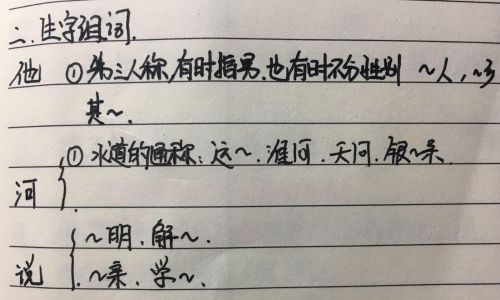 二.生字组词.
他 ①第三人称,有时指男.也有时不分性别 ~人,~乡
其~.
①水道的通称:运~.淮河.天河.银~系.
河
~明.解~.
说 ~亲.学~.